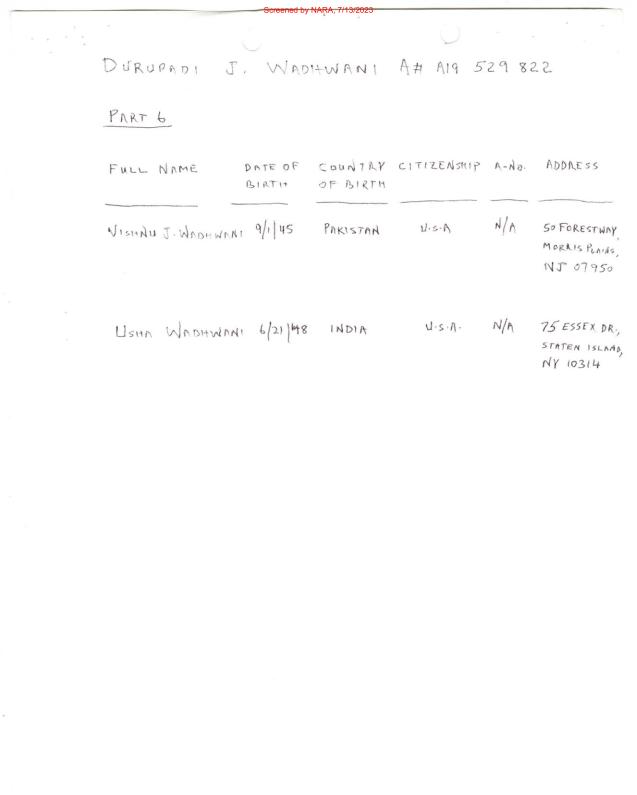 Screened by NARA, 7/13/2023
DURUPADI J. WADHWANI A# A19 529 822
PART 6
FULL NAME DATE OF BIRTH COUNTRY OF BIRTH CITIZENSHIP A-NO. ADDRESS
VISHNU J. WADHWANI 9/1/45 PAKISTAN U.S.A N/A 50 FORESTWAY,
MORRIS PLAINS,
NJ 07950
USHA WADHWANI 6/21/48 INDIA U.S.A. N/A 75 ESSEX DR.,
STATEN ISLAND,
NY 10314